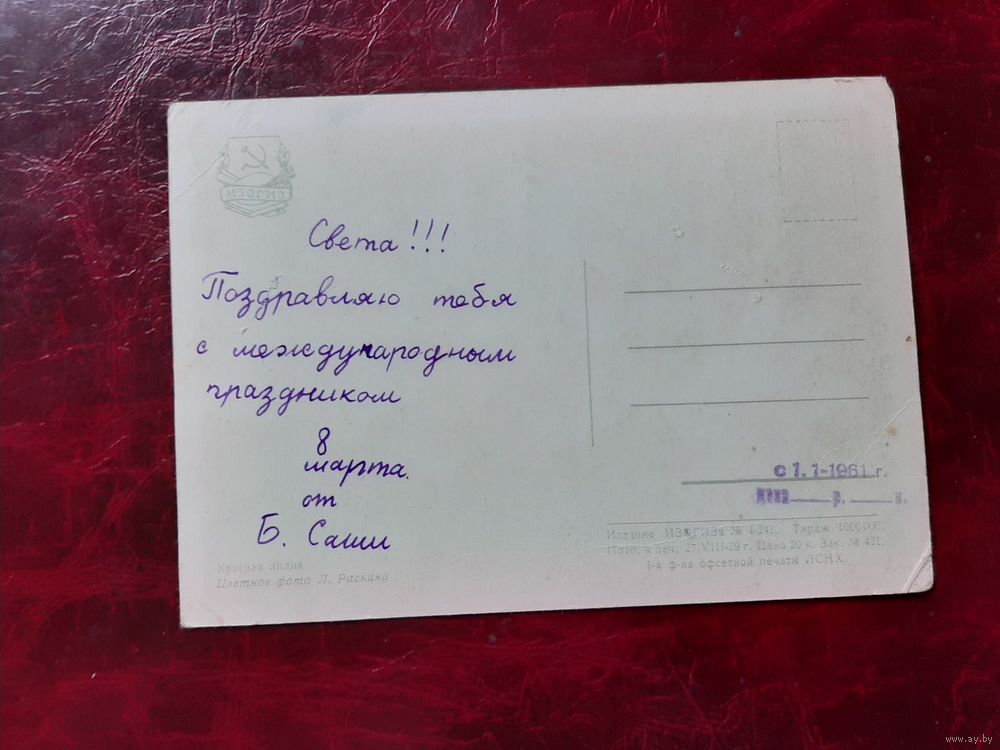 ИЗОГИЗ
Света!!!
Поздравляю тебя
с международным
праздником
8
марта.
от
Б. Саши
Красная лилия
Цветное фото Л. Раскина
с 1.1-1961 г.
р. к.
Издание ИЗОГИЗа № 4-241. Тираж 1000000.
Подп. к печ. 27/VIII-59 г. Цена 20 к. Зак. № 421.
1-я ф-ка офсетной печати ЛСНХ.
www.ay.by